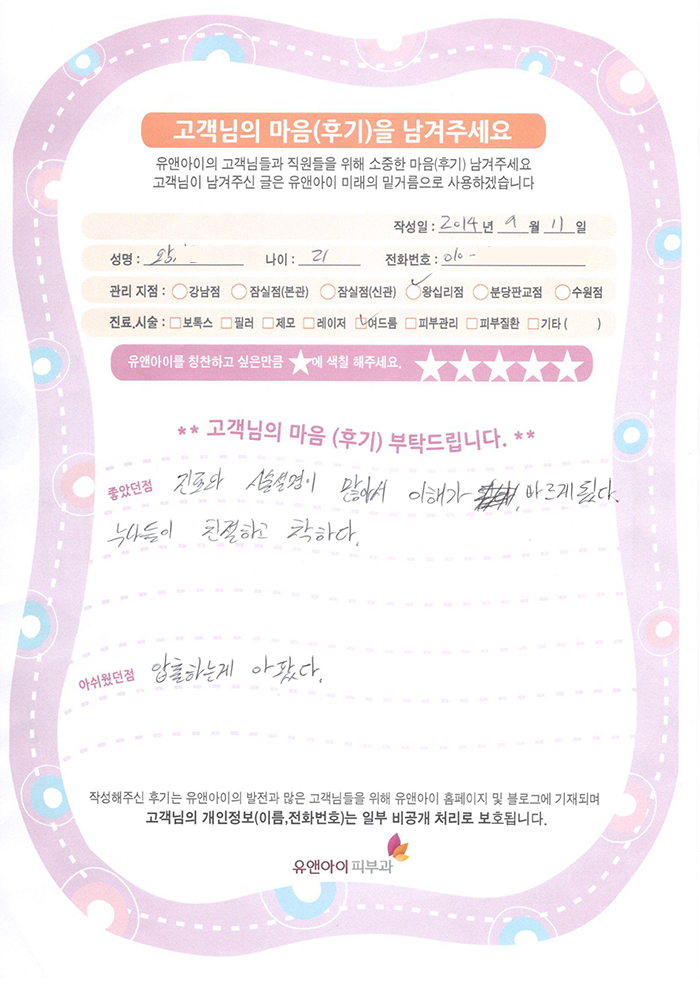 고객님의 마음(후기)을 남겨주세요
유앤아이의 고객님들과 직원들을 위해 소중한 마음(후기) 남겨주세요
고객님이 남겨주신 글은 유앤아이 미래의 밑거름으로 사용하겠습니다
작성일 : 2014 년 9 월 11 일
성명 : 나이 : 21 전화번호 : 010 -
관리 지점 : 강남점 잠실점(본관) 잠실점(신관) 왕십리점 분당판교점 수원점
진료,시술 : 보톡스 필러 제모 레이저 여드름 피부관리 피부질환 기타 ( )
유앤아이를 칭찬하고 싶은만큼 ★에 색칠 해주세요. ★★★★★
** 고객님의 마음 (후기) 부탁드립니다. **
좋았던점 진료와 시술설명이 많아서 이해가 빠르게 됐다.
누나들이 친절하고 착하다.
아쉬웠던점 압출하는게 아팠다.
작성해주신 후기는 유앤아이의 발전과 많은 고객님들을 위해 유앤아이 홈페이지 및 블로그에 기재되며
고객님의 개인정보(이름,전화번호)는 일부 비공개 처리로 보호됩니다.
유앤아이피부과